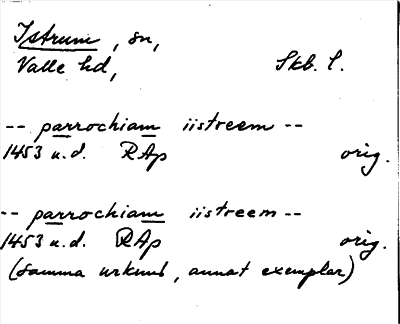 Istrum, sn,
Valle hd, Skb. l.
-- parrochiam iistreem --
1453 u.d. RAp orig.
-- parrochiam iistreem --
1453 u.d. RAp orig.
(samma urkund, annat exemplar)